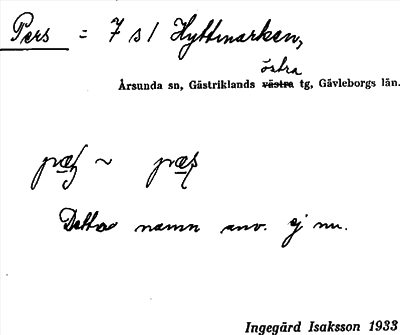 Pers = 7 s/ Hyttmarken,
östra
Årsunda sn, Gästriklands västra tg, Gävleborgs län.
~
Detta namn anv. ej nu.
Ingegärd Isaksson 1933